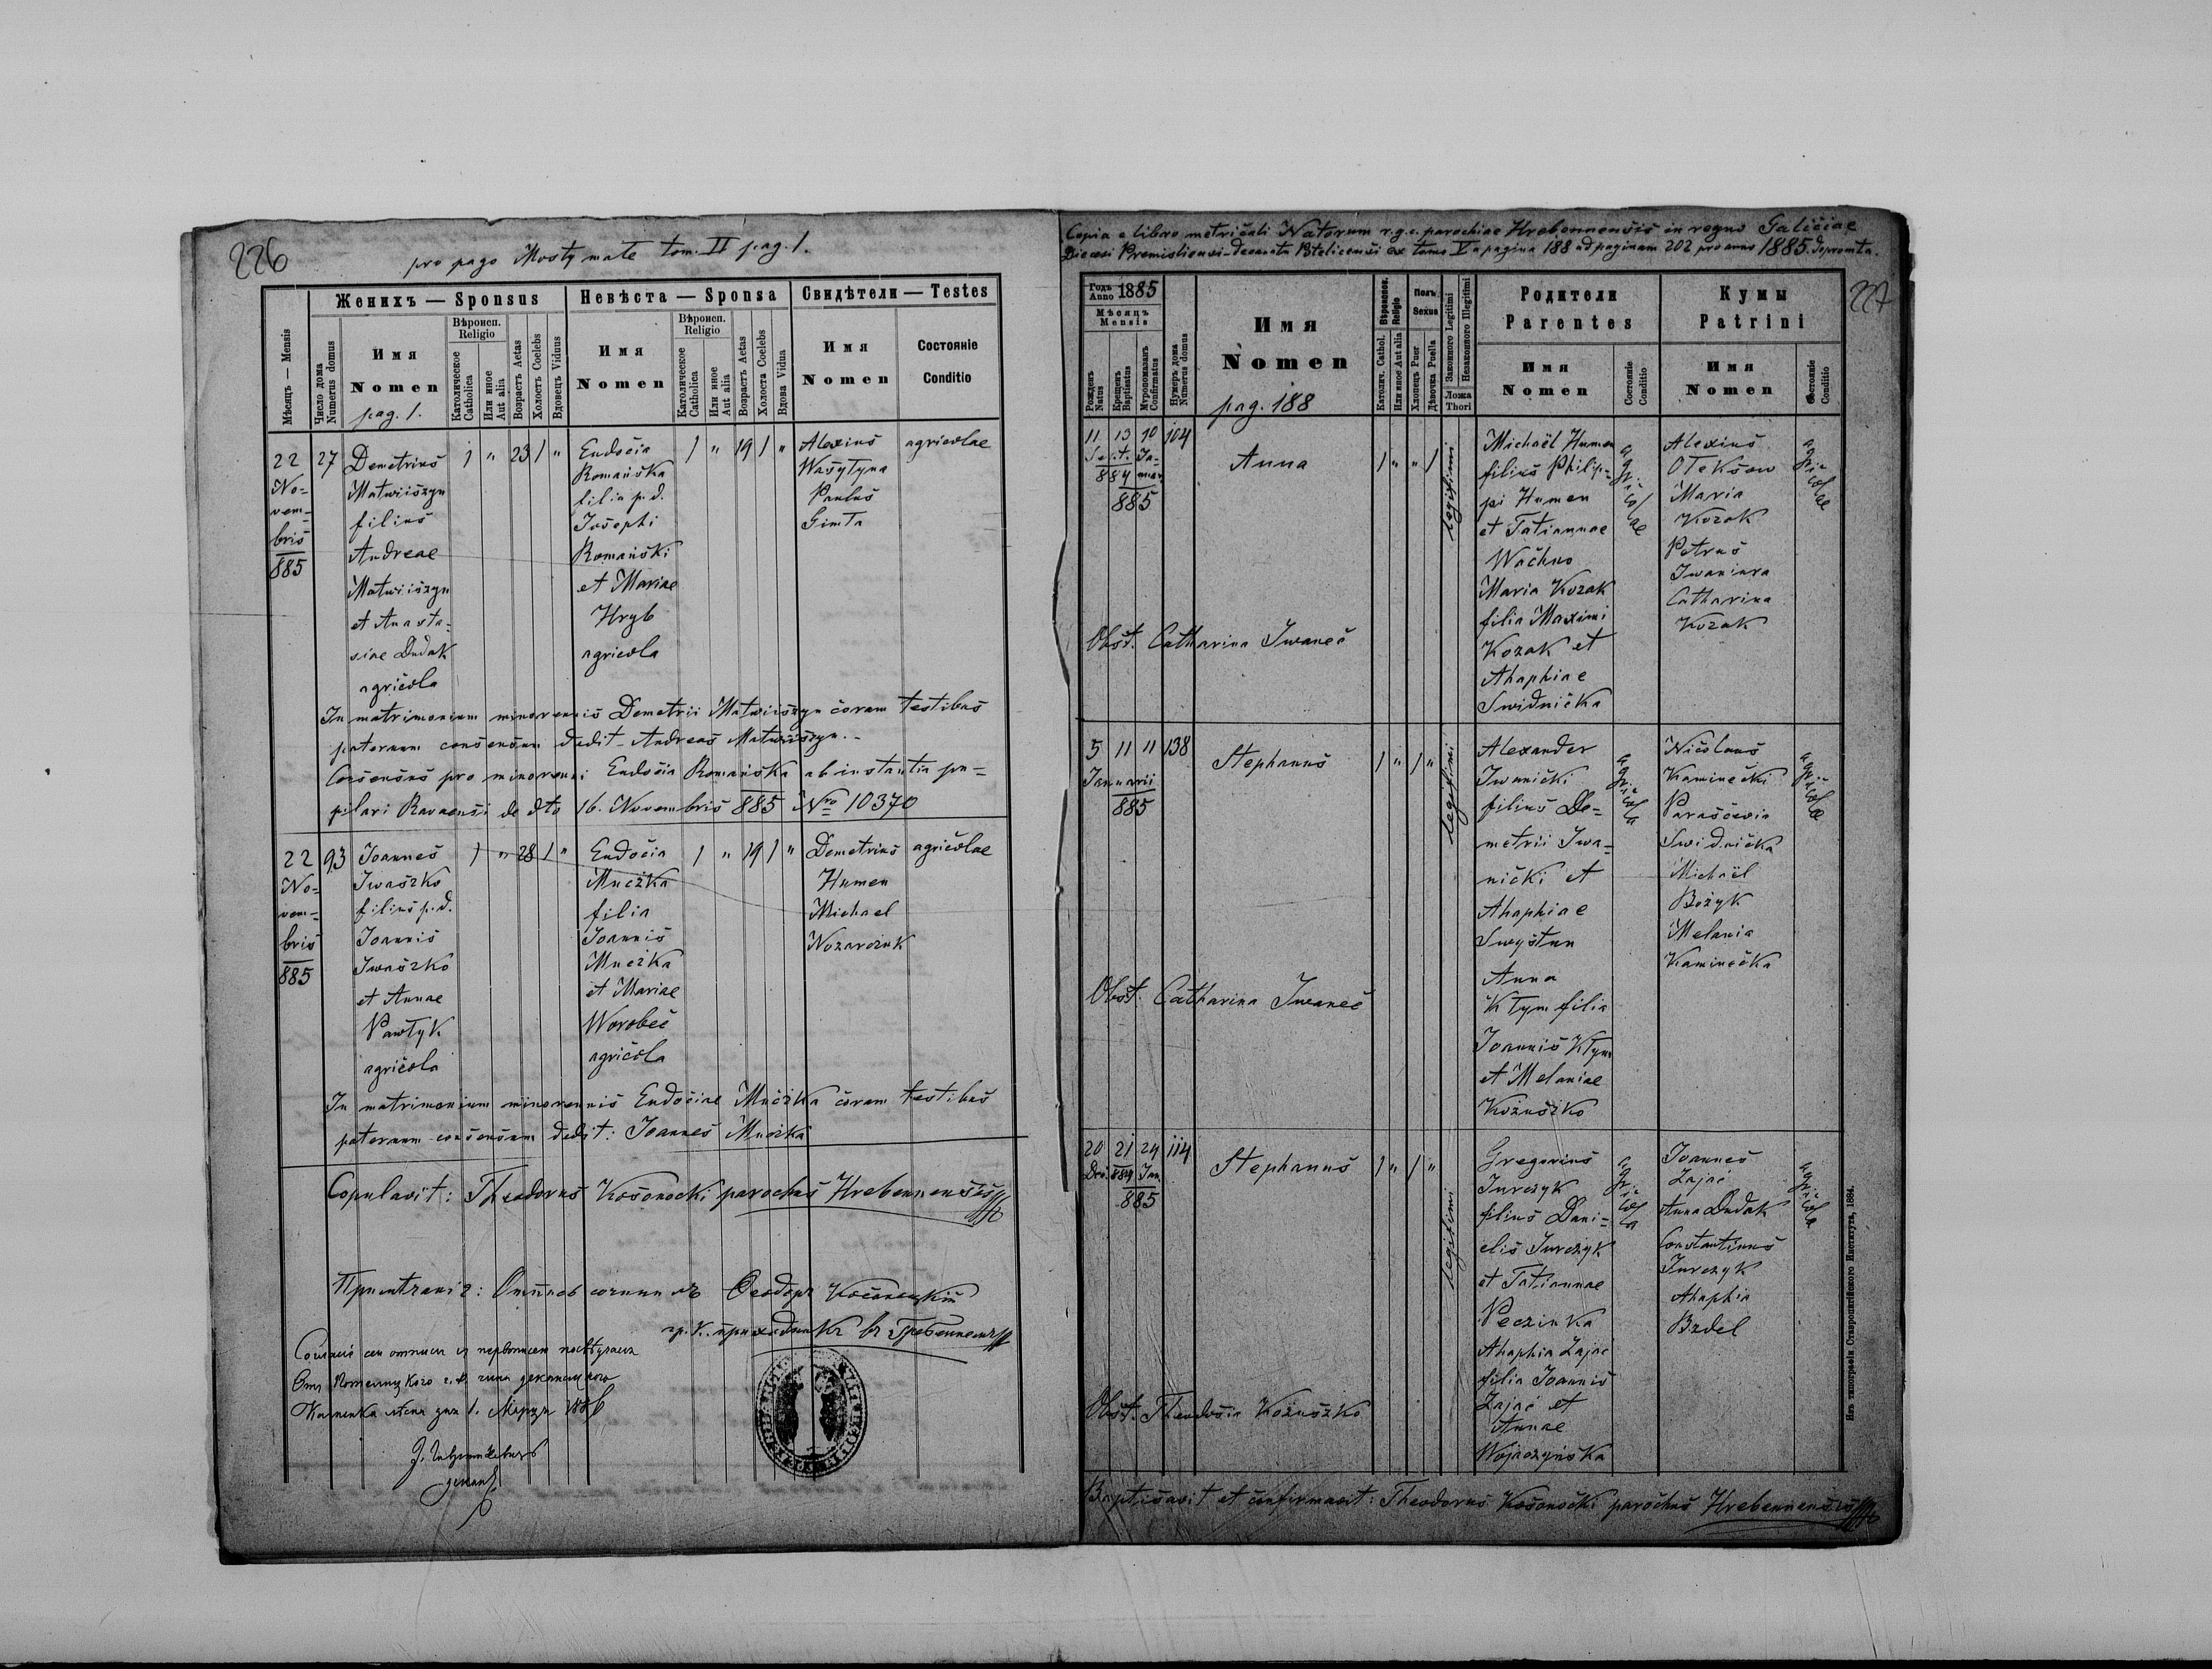 226
pro pago Mosty małe tom. II pag. 1.
Мѣсяцъ — Mensis
Женихъ — Sponsus
Невѣста — Sponsa
Свидѣтели — Testes
Число дома Numerus domus
Имя
Nomen
pag. 1.
Вѣроисп. Religio
Католическое Catholica
Или иное Aut alia
Возрастъ Aetas
Холостъ Coelebs
Вдовецъ Viduus
Имя
Nomen
Вѣроисп. Religio
Католическое Catholica
Или иное Aut alia
Возрастъ Aetas
Холоста Coelebs
Вдова Vidua
Имя
Nomen
Состояніе
Conditio
22 27 Demetrius 1 " 23 1 " Eudocia 1 " 19 1 " Alexius agricolae
No- Matwiiszyn Romańska Wasyłyna
vem- filius filia p.d. Paulus
bris Andreae Josephi Gimta
885 Matwiiszyn Romański
et Anasta- et Mariae
siae Dudak Hryb
agricola agricola
In matrimonium minorennis Demetrii Matwiiszyn coram testibus
paternum consensum dedit - Andreas Matwiiszyn. -
Consensus pro minorenni Eudocia Romańska ab instantia pu-
pilari Ravaensi de dto 16. Novembris 885 Nro 10370
22 93 Joannes 1 " 28 1 " Eudocia 1 " 19 1 " Demetrius agricolae
No- Iwaszko Muczka Humen
vem- filius p.d. filia Michael
bris Joannis Joannis Nozarczuk
885 Iwaszko Muczka
et Annae et Mariae
Pawłyk Worobec
agricola agricola
In matrimonium minorennis Eudociae Muczka coram testibus
paternum consensum dedit: Joannes Muczka
Copulavit: Theodorus Kosonocki parochus Hrebennensis
Теодоръ Косоноцкій
гр. к. приходникъ въ Гребенномъ
1. Марта 1886
деканъ
227
Copia e libro metricali Natorum r.g.c. parochiae Hrebennensis in regno Galiciae
Diecesi Premisliensi - Decanatu Potelicensi ex tomo V a pagina 188 ad paginam 202 pro anno 1885. depromta.
Годъ Anno 1885
Мѣсяцъ Mensis
Рожденъ Natus
Крещенъ Baptisatus
Мѵропомазанъ Confirmatus
Нумеръ дома Numerus domus
Имя
Nomen
pag. 188
Вѣроиспов. Religio
Католич. Cathol.
Или иное Aut alia
Полъ Sexus
Хлопецъ Puer
Дѣвочка Puella
Законного Legitimi
Незаконного Illegitimi
Ложа Thori
Родители
Parentes
Имя
Nomen
Состояніе Conditio
Кумы
Patrini
Имя
Nomen
Состояніе Conditio
11 13 10 104 Anna 1 " " 1 legitimi Michaël Humen agricolae Alexius agricolae
Sept. Ja- filius Philip- Ołeksow
884 nuar. pi Humen Maria
885 et Tatiannae Kozak
Wachno Petrus
Maria Kozak Iwaniura
filia Maximi Catharina
Kozak et Kozak
Ahaphiae
Swidnicka
Obst. Catharina Iwanec
5 11 11 138 Stephanus 1 " 1 " legitimi Alexander agricola Nicolaus agricolae
Januarii Iwanicki Kaminecki
885 filius De- Parascevia
metrii Iwa- Swidnicka
nicki et Michaël
Ahaphiae Bożyk
Swystun Melania
Anna Kaminecka
Kłym filia
Joannis Kłym
et Melaniae
Kożuszko
Obst. Catharina Iwanec
20 21 24 114 Stephanus 1 " 1 " legitimi Gregorius agricola Joannes agricola
884 Jan. Jurczyk Zając
885 filius Dani- Anna Dudak
elis Jurczyk Constantinus
et Tatiannae Jurczyk
Peczinka Ahaphia
Ahaphia Zając Bzdel
filia Joannis
Zając et
Annae
Wojaczyńska
Obst. Theodosia Kożuszko
Baptisavit et confirmavit: Theodorus Kosonocki parochus Hrebennensis
Изъ типографіи Ставропигійского Института, 1884.